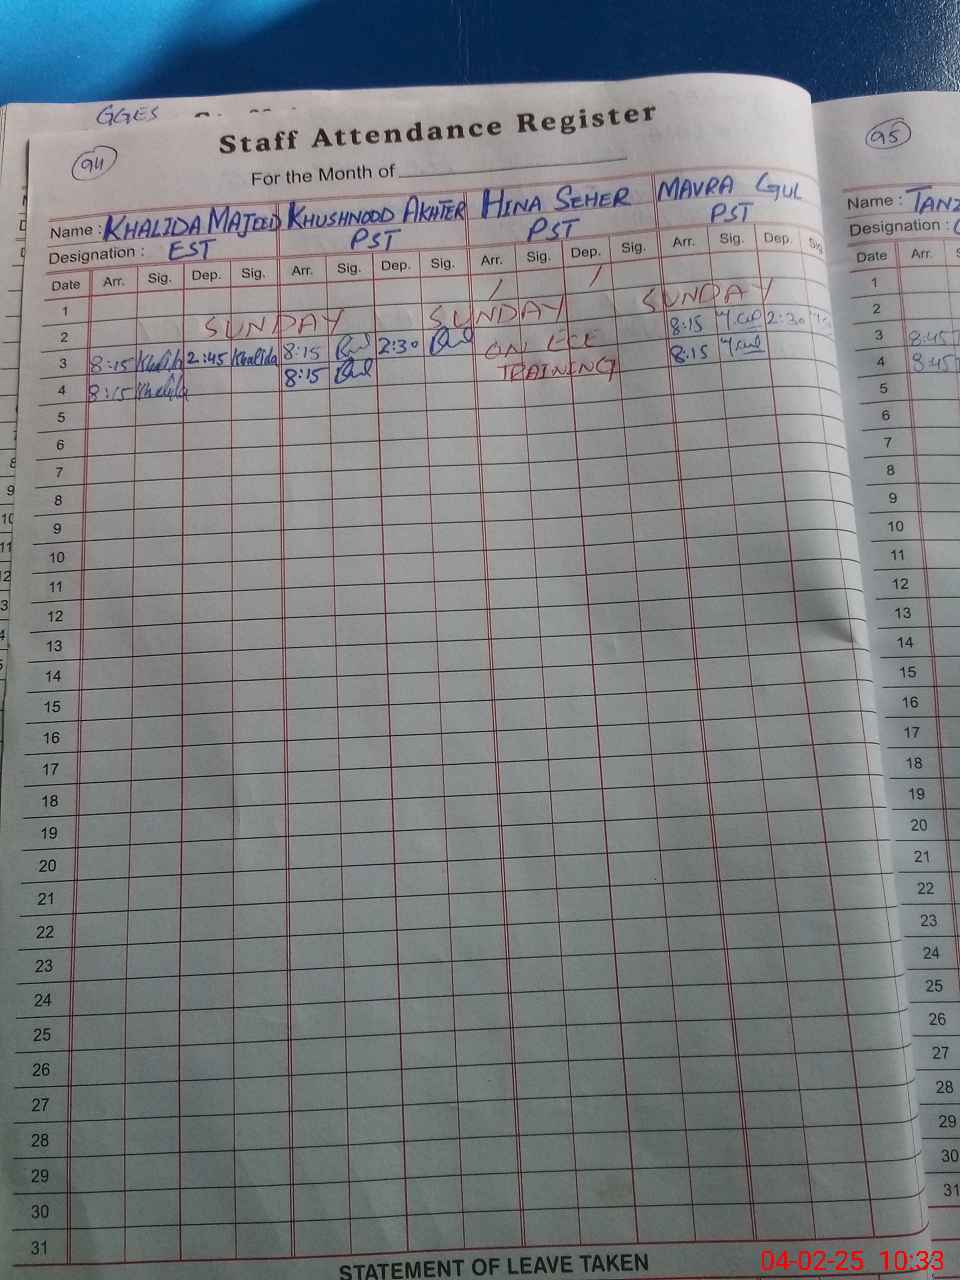 GGES
94
Staff Attendance Register
95
For the Month of
Name : KHALIDA MAJEED KHUSHNOOD AKHTER HINA SEHER MAVRA GUL
Name : TANZ
Designation : EST PST PST PST
Designation :
Date Arr. Sig. Dep. Sig. Arr. Sig. Dep. Sig. Arr. Sig. Dep. Sig. Arr. Sig. Dep. Sig
Date Arr.
1
1
2 SUNDAY SUNDAY SUNDAY
2
3 8:15 Khalida 2:45 Khalida 8:15 2:30 ON ECE 8:15 2:30
3 8:45
4 8:15 Khalida 8:15 TRAINING 8:15
4 8:45
5
5
6
6
7
7
8
8
9
9
10
10
11
11
12
12
13
13
14
14
15
15
16
16
17
17
18
18
19
19
20
20
21
21
22
22
23
23
24
24
25
25
26
26
27
27
28
28
29
29
30
30
31
31
STATEMENT OF LEAVE TAKEN
04-02-25 10:33